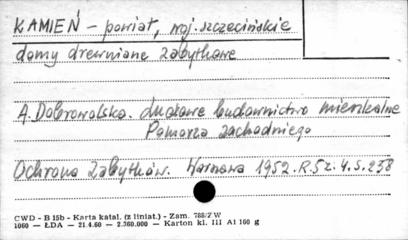 KAMIEŃ - powiat, woj. szczecińskie
domy drewniane zabytkowe
A. Dobrowolska. budownictwo mieszkalne
Pomorza zachodniego
Ochrona Zabytków. Warszawa 1952. R. 5 z. 4. s. 238
CWD - B 15b - Karta katal. (z liniat.) - Zam. 788/Z W
1060 — ŁDA — 21.4.60 — 2.360.000 — Karton kl. III A1 160 g